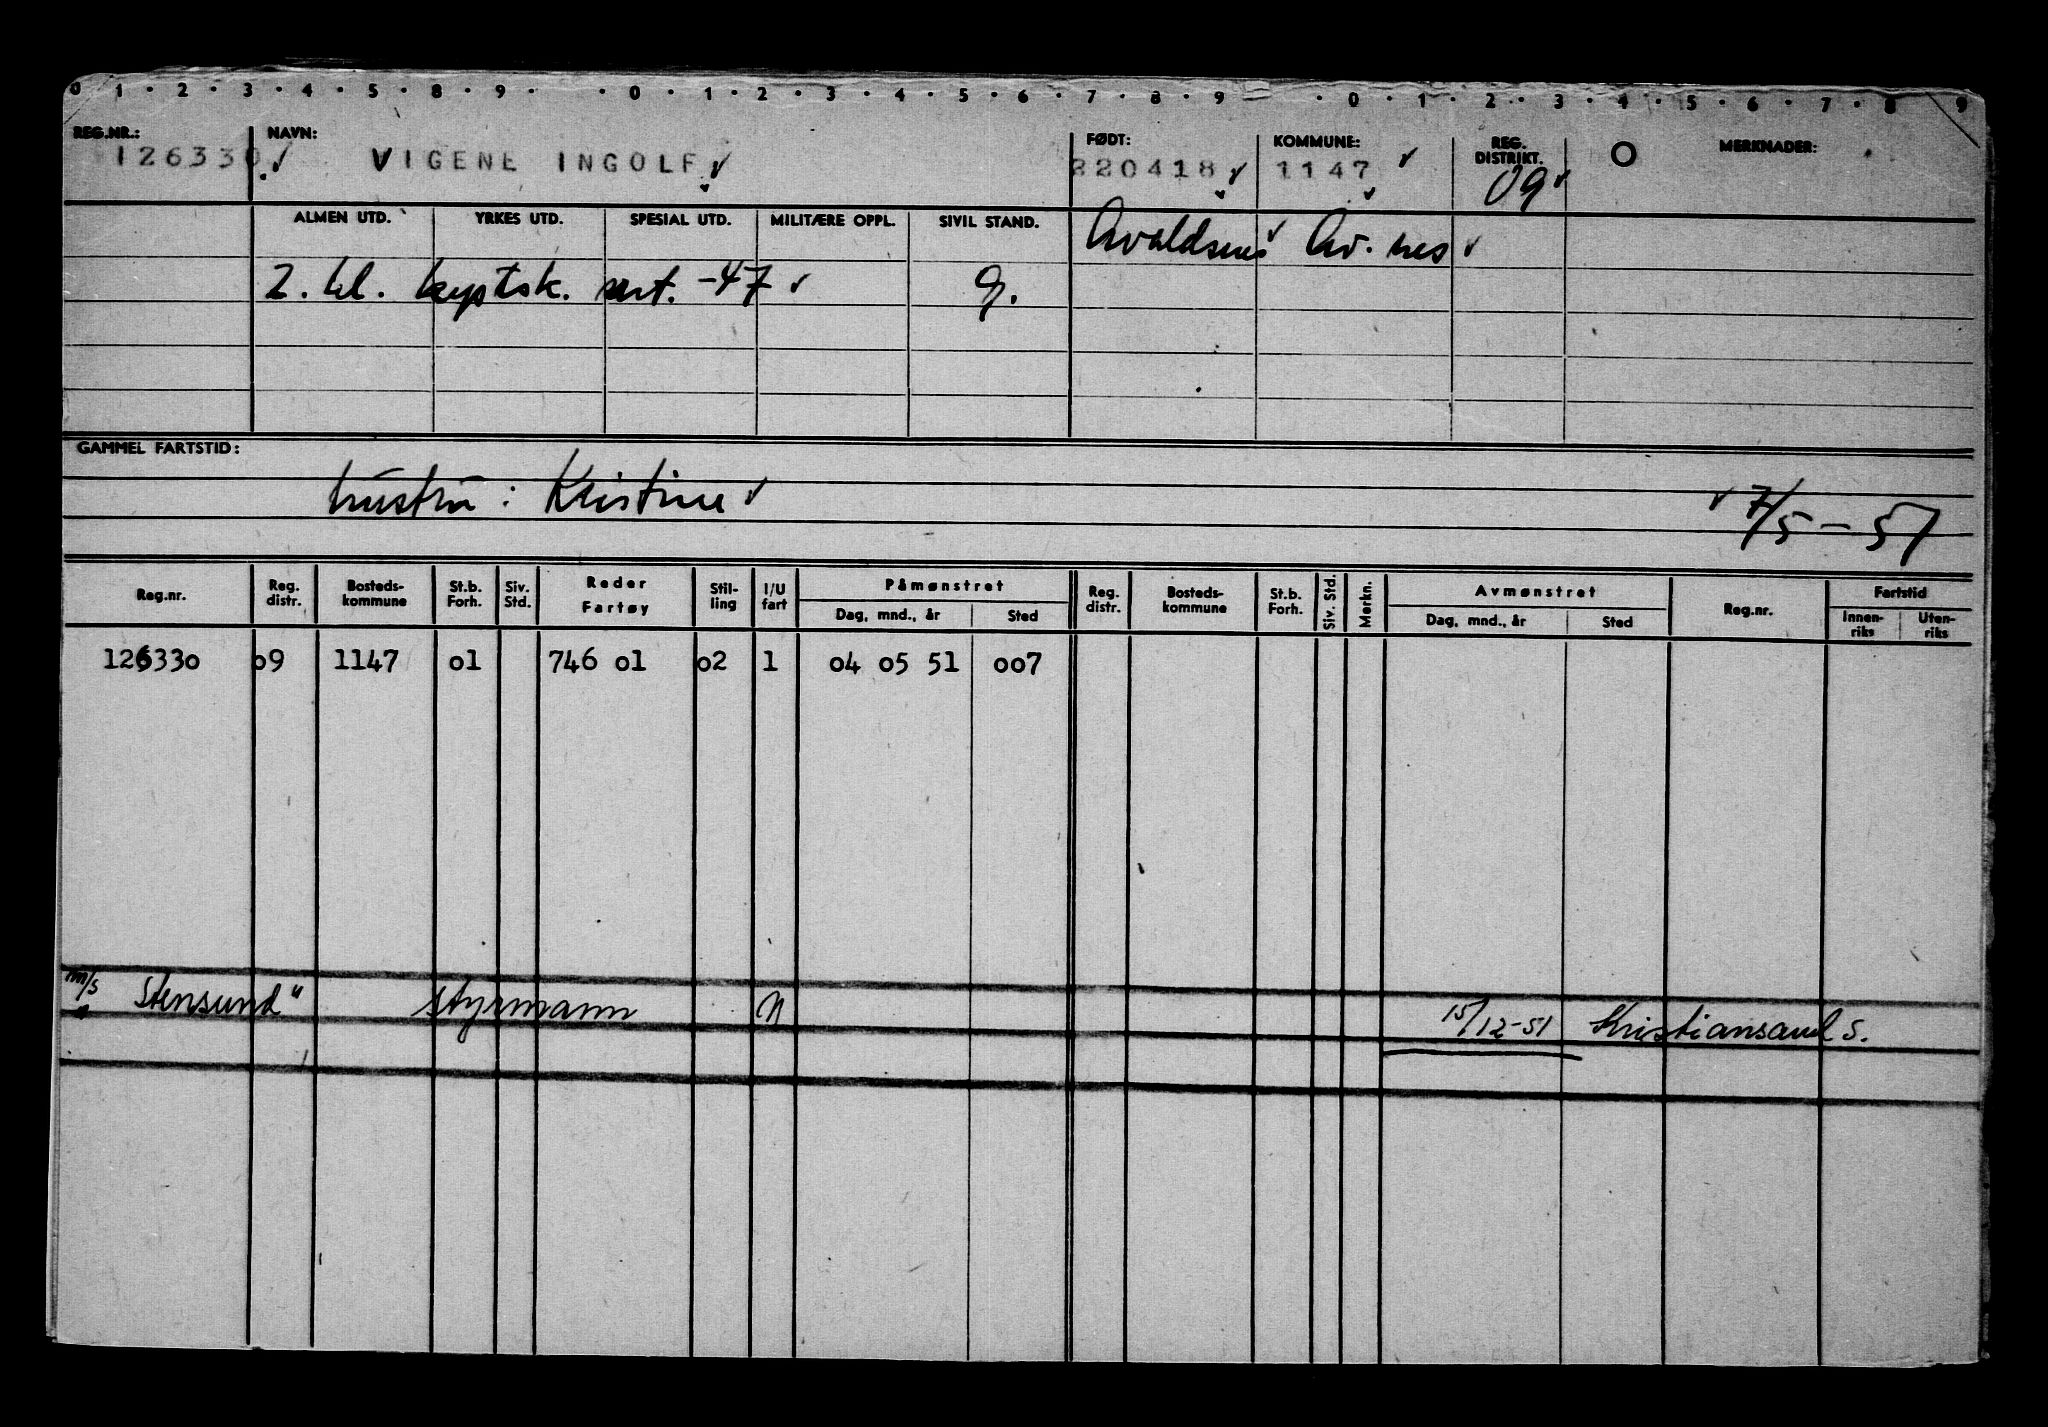 0 1 · 2 · 3 · 4 · 5 · 8 · 9 · · 0 · 1 · 2 · 3 · 4 · 5 · 6 · 7 · 8 · 9 · 0 · 1 · 2 · 3 · 4 · 5 · 6 · 7 · 8 · 9
REG.NR.: NAVN: FØDT: KOMMUNE: REG. DISTRIKT. O MERKNADER:
126330 VIGENE INGOLF 220418 1147 09
ALMEN UTD. YRKES UTD. SPESIAL UTD. MILITÆRE OPPL. SIVIL STAND. Avaldsnes Av. nes
2. kl. kystsk. sert. -47 g.
GAMMEL FARTSTID:
hustru: Kristine 7/5 - 57
Reg.nr. Reg. distr. Bosteds-kommune St.b. Forh. Siv. Std. Reder Fartøy Stil-ling I/U fart Påmønstret Dag, mnd., år Sted Reg. distr. Bosteds-kommune St.b. Forh. Siv. Std. Merkn. Avmønstret Dag, mnd., år Sted Reg.nr. Fartstid Innen-riks Uten-riks
126330 09 1147 01 746 01 02 1 04 05 51 007
m/s "Stensund" styrmann N 15/12-51 Kristiansand S.